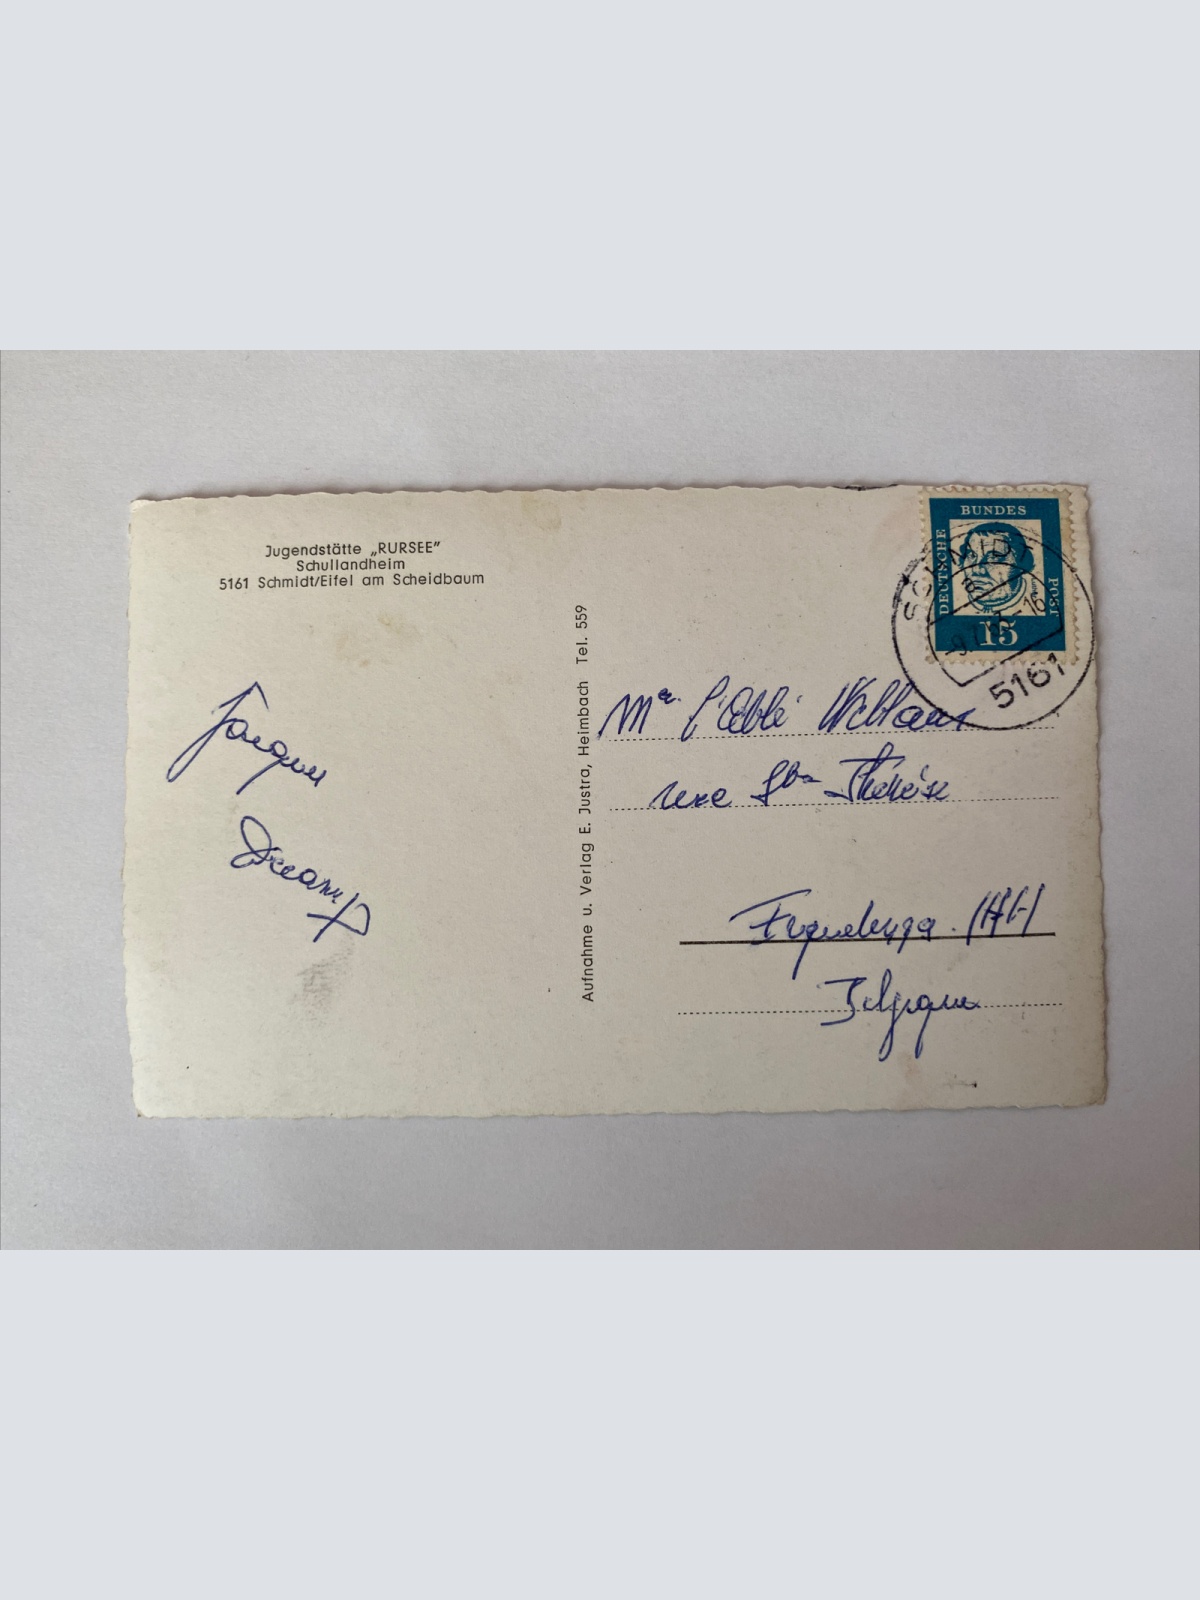 Jugendstätte „RURSEE"
Schullandheim
5161 Schmidt/Eifel am Scheidbaum
Aufnahme u. Verlag E. Justra, Heimbach Tel. 559
DEUTSCHE
BUNDES
POST
15
SCHMIDT
5161
Mr l'Abbé
rue Ste Thérèse
(Ht)
Belgique